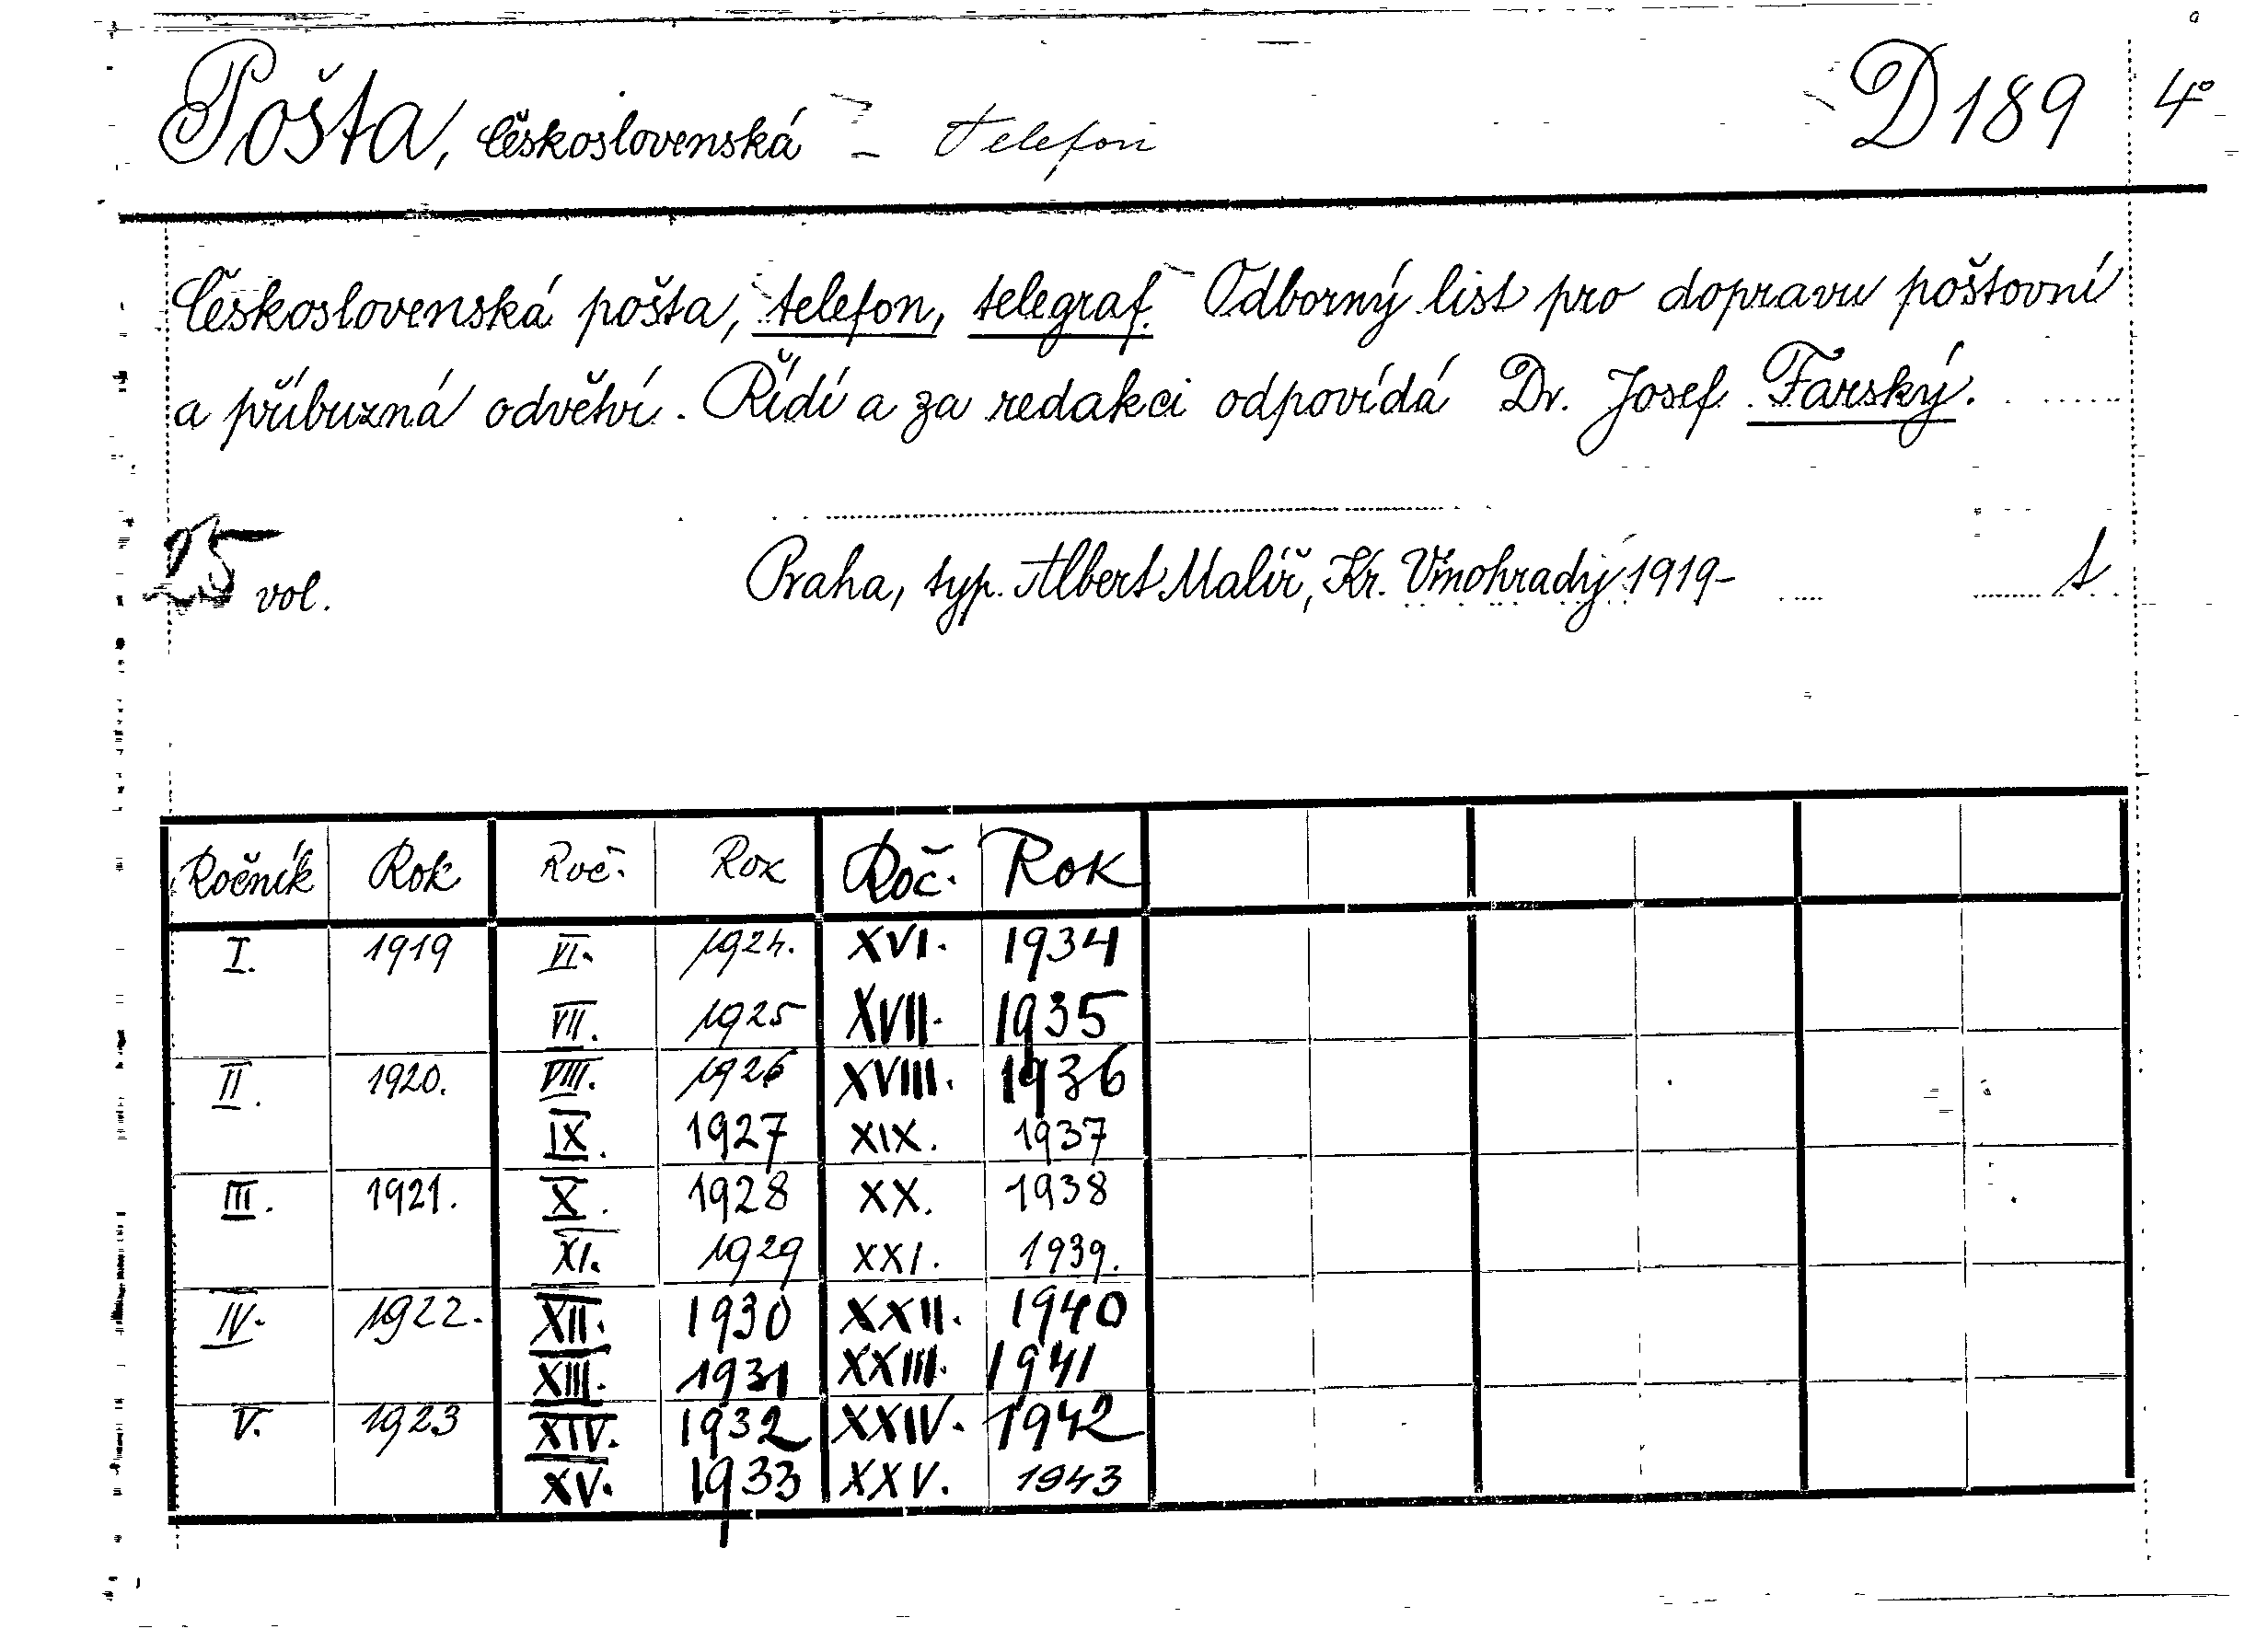 Pošta, Československá - Telefon D 189 4°
Československá pošta, telefon, telegraf. Odborný list pro dopravu poštovní
a příbuzná odvětví. Řídí a za redakci odpovídá Dr. Josef Farský.
25 vol. Praha, typ. Albert Malíř, Kr. Vinohrady 1919-
Ročník Rok Roč. Rok Roč. Rok
I. 1919 VI. 1924. XVI. 1934
VII. 1925 XVII. 1935
II. 1920. VIII. 1926 XVIII. 1936
IX. 1927 XIX. 1937
III. 1921. X. 1928 XX. 1938
XI. 1929 XXI. 1939.
IV. 1922. XII. 1930 XXII. 1940
XIII. 1931 XXIII. 1941
V. 1923 XIV. 1932 XXIV. 1942
XV. 1933 XXV. 1943